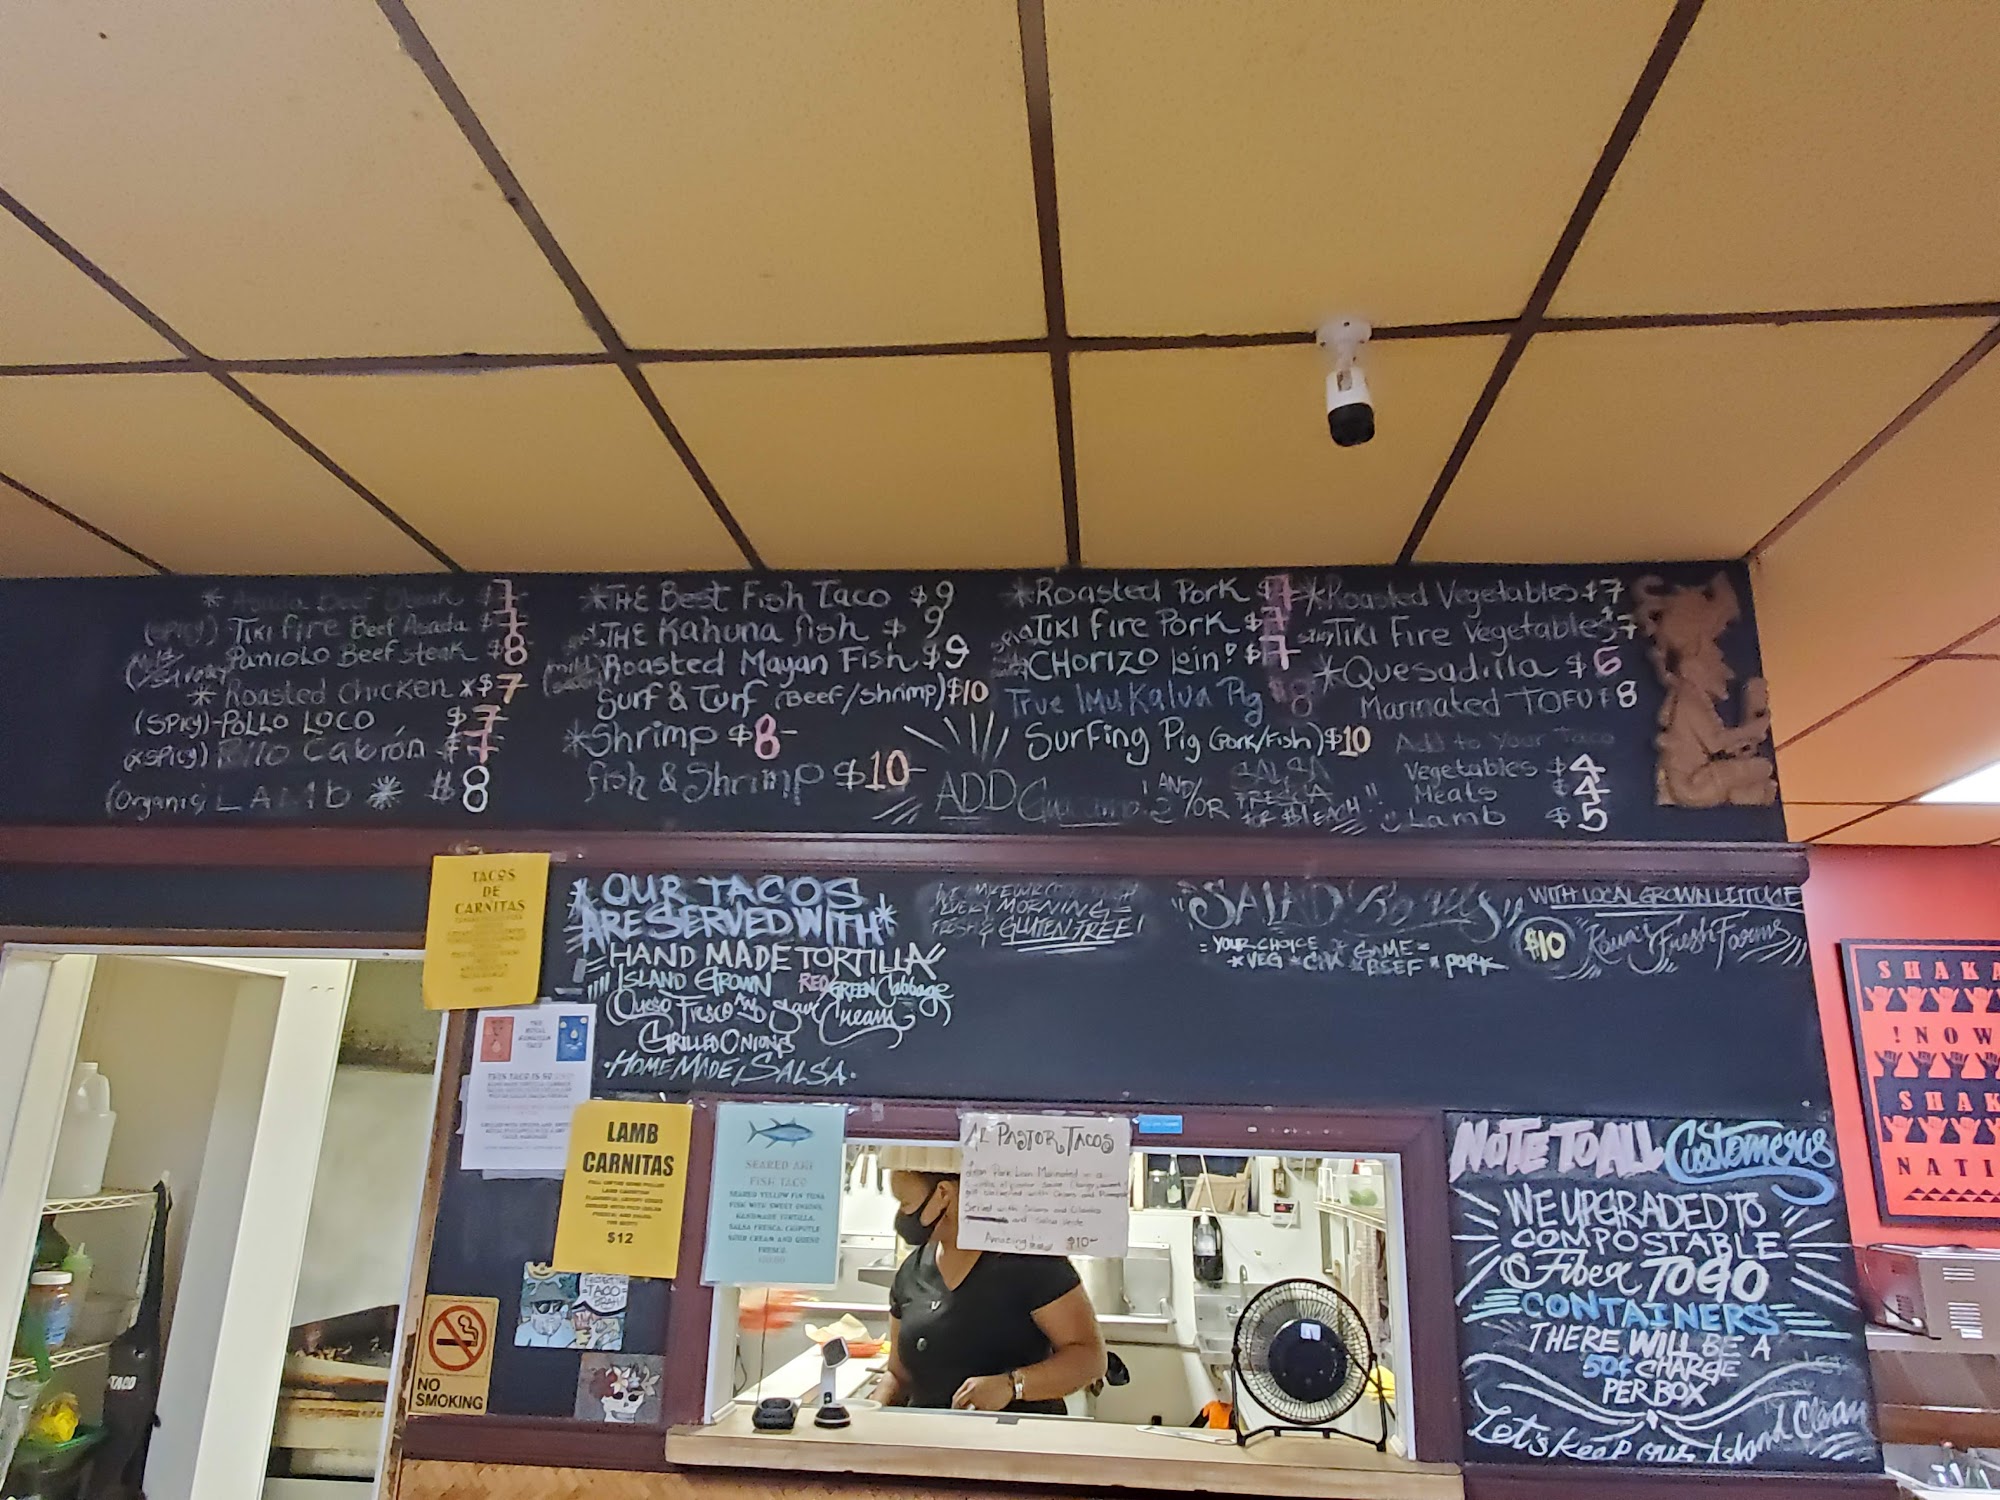 * Asada Beef Steak $7
(SPICY) TIKI FIRE Beef Asada $7
Paniolo Beef steak $8
* Roasted chicken x$7
(SPICY)-POLLO LOCO $7
(xSPICY) Pollo Cabrón $7
(Organic) LAMb * $8
*THE Best Fish Taco $9
THE Kahuna fish $9
Roasted Mayan Fish $9
Surf & Turf (Beef/shrimp) $10
*Shrimp $8-
fish & Shrimp $10-
*Roasted Pork $7
TIKI Fire Pork $7
CHORIZO Loin! $7
True Imu Kalua Pig $8
Surfing Pig (Pork/Fish) $10
ADD
AND/OR SALSA FRESCA
EACH
*Roasted Vegetables $7
TIKI Fire Vegetables $7
*Quesadilla $6
Marinated TOFU $8
Add to Your Taco
Vegetables $4
Meats $4
Lamb $5
TACOS
DE
CARNITAS
*OUR TACOS
ARE SERVED WITH*
HAND MADE TORTILLA
ISLAND GROWN RED/GREEN Cabbage
Queso Fresco AND Sour Cream
GRILLED ONIONS
·HOME MADE SALSA·
EVERY MORNING =
FRESH & GLUTEN FREE!
"SALAD Bowls"
WITH LOCAL GROWN LETTUCE
= YOUR CHOICE * GAME =
*VEG * CHX * BEEF * PORK
$10 Kauai Fresh Farms
LAMB
CARNITAS
$12
SEARED AHI
FISH TACO
SEARED YELLOW FIN TUNA
WITH SWEET ONIONS,
HANDMADE TORTILLA,
SALSA FRESCA, CHIPOTLE
SOUR CREAM AND QUESO
FRESCO.
AL PASTOR TACOS
Lean Pork Loin Marinated in a
Served with Onions and Cilantro
and Salsa Verde
Amazing! $10-
NO
SMOKING
TACO
TACO
NOTE TO ALL Customers
WE UPGRADED TO
COMPOSTABLE
Fiber TOGO
CONTAINERS
THERE WILL BE A
50¢ CHARGE
PER BOX
Let's keep our Island Clean
SHAKA
!NOW
SHAK
NATI